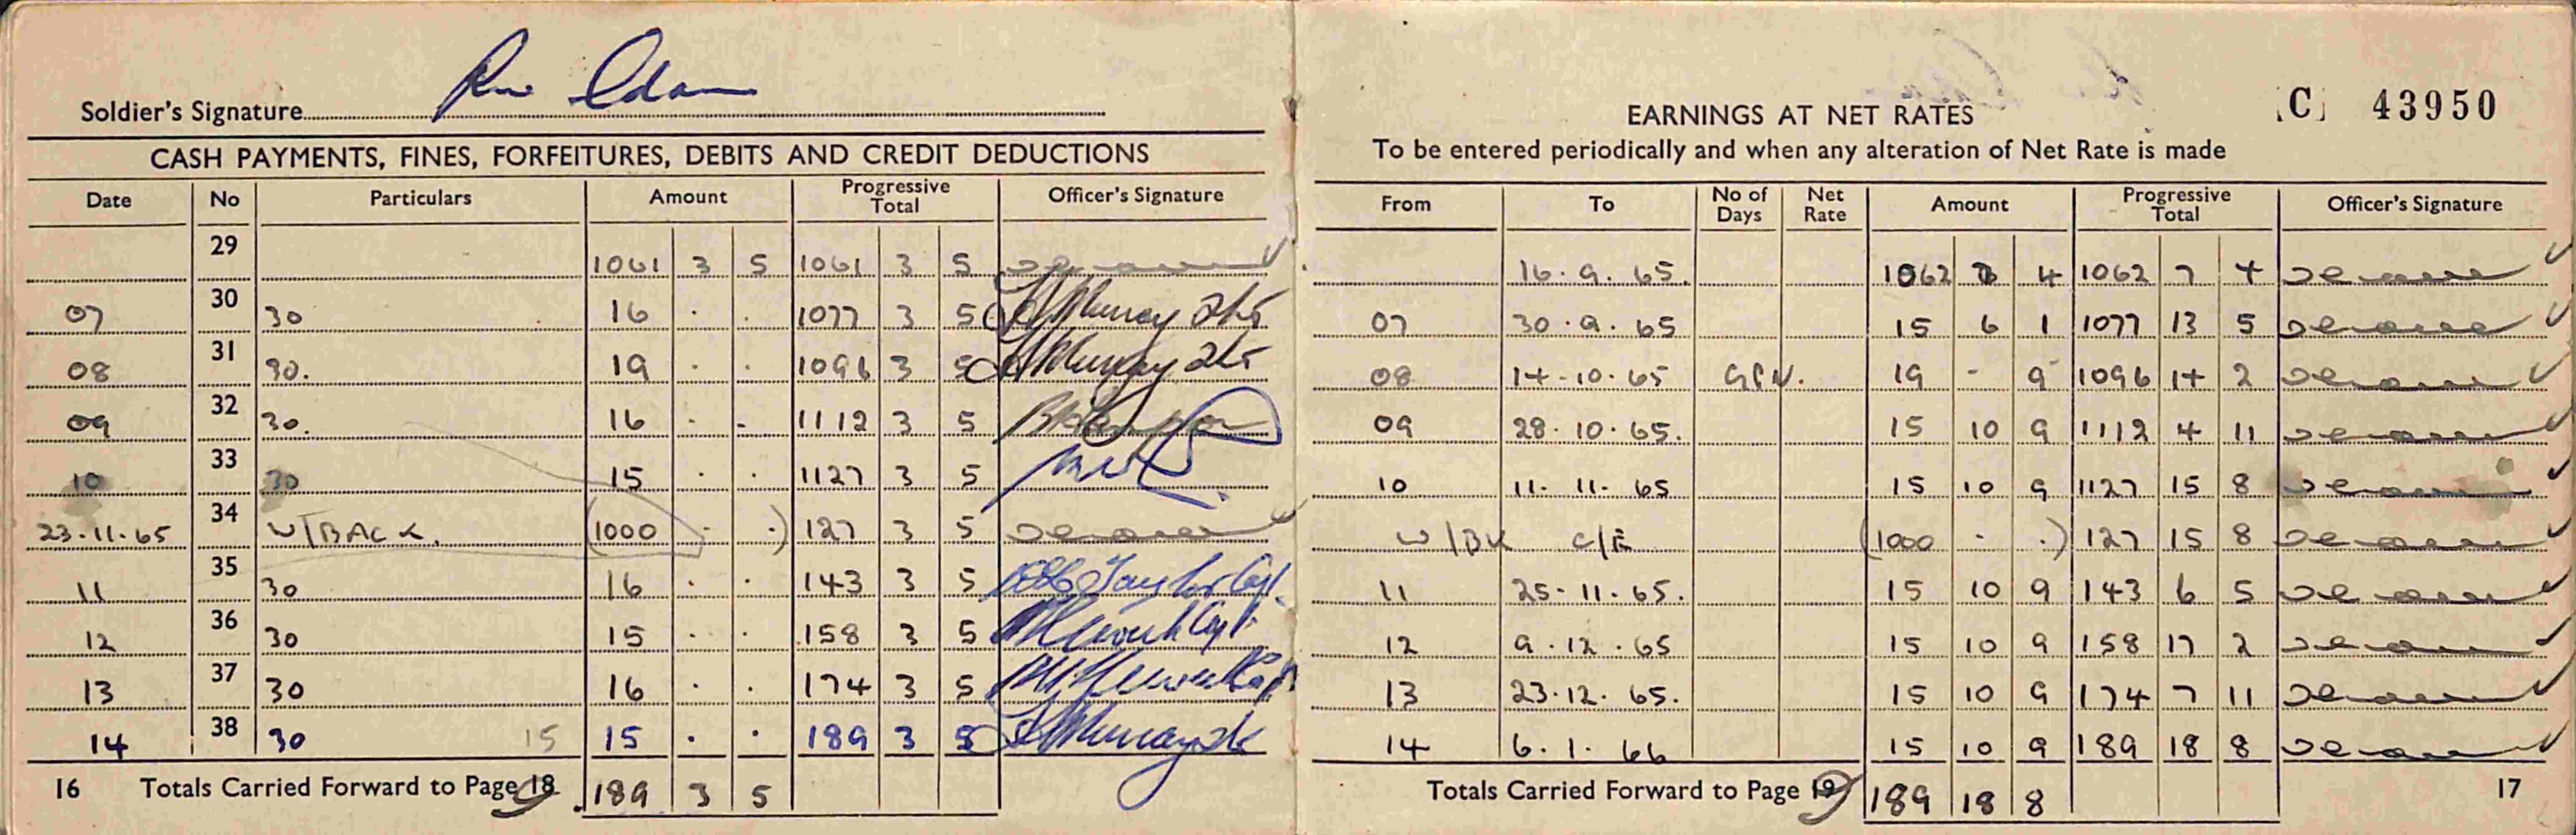 Soldier's Signature
CASH PAYMENTS, FINES, FORFEITURES, DEBITS AND CREDIT DEDUCTIONS
Date No Particulars Amount Progressive Total Officer's Signature
29 1061 3 5 1061 3 5
07 30 30 16 . . 1077 3 5 Murray
08 31 30. 19 . . 1096 3 5 Murray
09 32 30. 16 . - 1112 3 5
10 33 30 15 . . 1127 3 5
23.11.65 34 W/BACK. (1000 . .) 127 3 5
11 35 30 16 . . 143 3 5 Taylor Capt.
12 36 30 15 . . 158 3 5
13 37 30 16 . . 174 3 5
14 38 30 15 15 . . 189 3 5 Murray
16 Totals Carried Forward to Page 18 189 3 5
[C] 43950
EARNINGS AT NET RATES
To be entered periodically and when any alteration of Net Rate is made
From To No of Days Net Rate Amount Progressive Total Officer's Signature
16.9.65. 1062 7 4 1062 7 4
07 30.9.65 15 6 1 1077 13 5
08 14.10.65 19 - 9 1096 14 2
09 28.10.65. 15 10 9 1112 4 11
10 11.11.65 15 10 9 1127 15 8
W/BK C/E (1000 - .) 127 15 8
11 25.11.65. 15 10 9 143 6 5
12 9.12.65 15 10 9 158 17 2
13 23.12.65. 15 10 9 174 7 11
14 6.1.66 15 10 9 189 18 8
Totals Carried Forward to Page 19 189 18 8 17